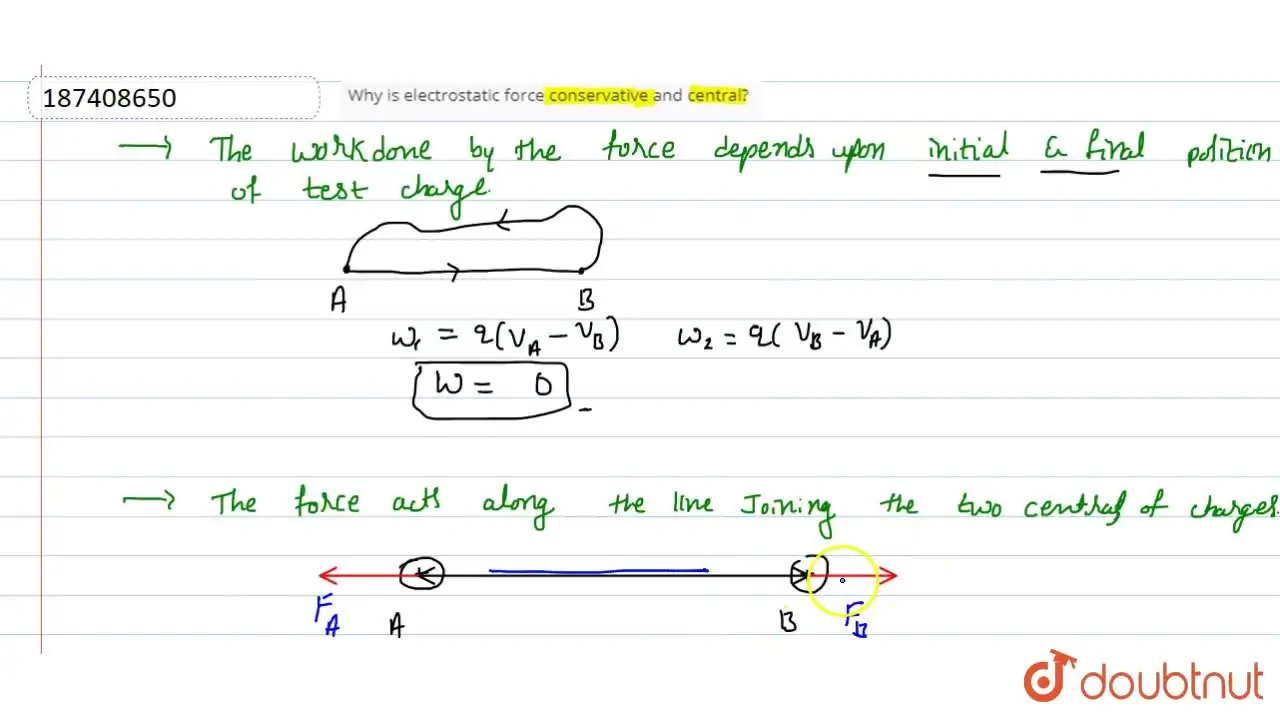 187408650
Why is electrostatic force conservative and central?
→ The workdone by the force depends upon initial & final polition
of test charge.
A B
W₁ = q(V_A − V_B) W₂ = q(V_B − V_A)
W = 0
→ The force acts along the line Joining the two centrals of charges.
F_A A B F_B
doubtnut